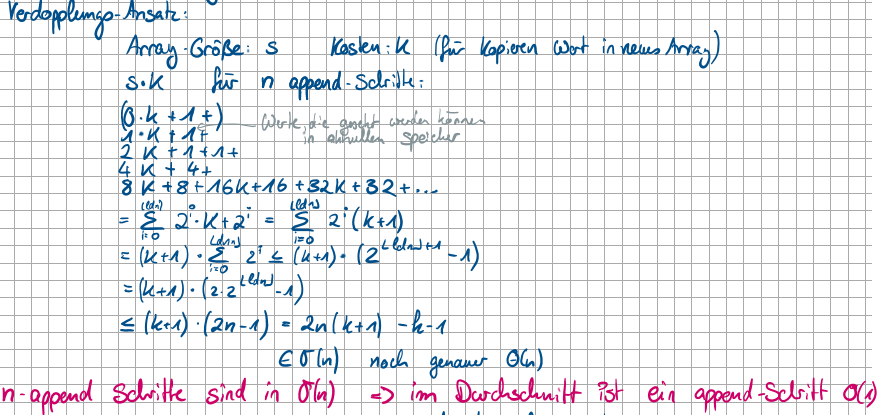 Verdopplungs-Ansatz:
Array-Größe: s Kosten: K (für Kopieren Wort in neues Array)
s·K für n append-Schritte:
(0·K + 1 +)
1·K + 1 + Werte, die gesetzt werden können
2 K + 1 + 1 + in aktuellen Speicher
4 K + 4 +
8 K + 8 + 16K + 16 + 32K + 32 + ...
= ∑_{i=0}^{⌊ld n⌋} 2^i · K + 2^i = ∑_{i=0}^{⌊ld n⌋} 2^i (K+1)
= (K+1) · ∑_{i=0}^{⌊ld n⌋} 2^i ≤ (K+1) · (2^{⌊ld n⌋+1} - 1)
= (K+1) · (2·2^{⌊ld n⌋} - 1)
≤ (K+1) · (2n-1) = 2n(K+1) - K - 1
∈ O(n) noch genauer Θ(n)
n-append Schritte sind in O(n) => im Durchschnitt ist ein append-Schritt O(1)